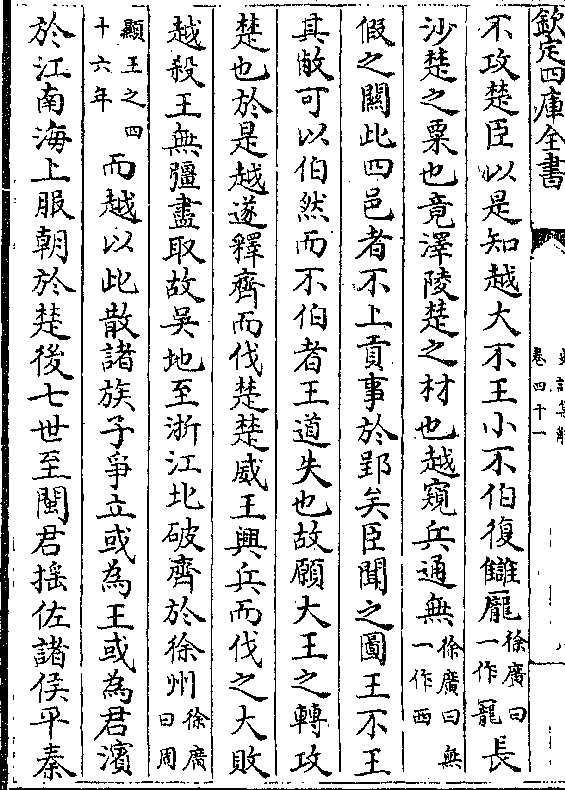 欽定四庫全書
卷四十一
不攻楚臣以是知越大不王小不伯復讎龐徐廣曰一作寵長
沙楚之粟也竟澤陵楚之材也越窺兵通無徐廣曰無一作西
假之關此四邑者不上貢事於郢矣臣聞之圖王不王
其敝可以伯然而不伯者王道失也故願大王之轉攻
楚也於是越遂釋齊而伐楚楚威王興兵而伐之大敗
越殺王無彊盡取故吳地至浙江北破齊於徐州徐廣曰周
顯王之四十六年而越以此散諸族子爭立或為王或為君濱
於江南海上服朝於楚後七世至閩君揺佐諸侯平秦